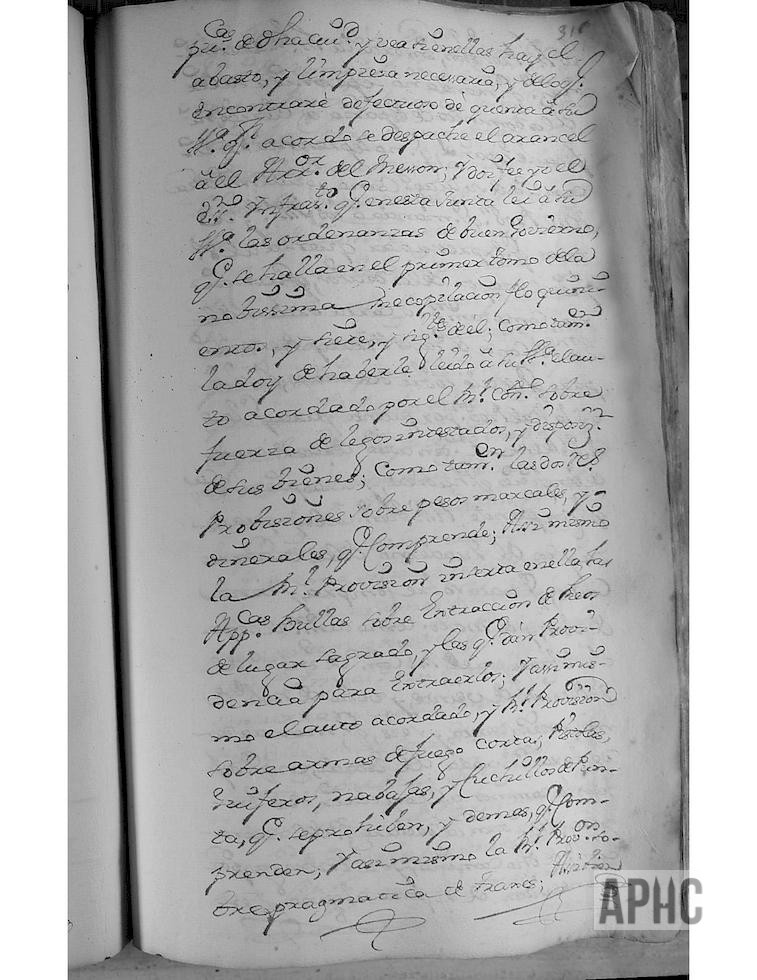 316
pu.cas de dha ciud. y vea si en ellas hay el
abasto, y limpieza necesaria, y de lo q.
encontrare defectuoso dè quenta â su
Md. q.n acordo se despache el arancel
â el Arr.or del Messon; Y doy fee yo el
ess.no Ynfras.to q. en esta Junta lei â su
Md. las ordenanzas de buen Govierno,
q. se halla en el primer tomo dela
nobissima recopilacion
entos, y siete, y sig.tes del; como tam.n
la doy de haberle leido â su Md. el au-
to acordado por el R.l Con. sobre
fuerza de legos intestados, y disposiz.n
de sus bienes; como tam.n las dos R.s
Probisiones sobre pesos marcales, y
dinerales, q. comprende; Assi mismo
la R.l Provision inserta en ella las
App.cas Bullas sobre Extracción de Reos
de lugar sagrado, y las q. dan Provi-
dencia para Extraerlos; Y assi mis-
mo el auto acordado, y R.l Provision
sobre armas de fuego cortas, Pistolas,
truiferos, nabajas, y Cuchillos de Pun-
ta, q. se prohiben, y demas, q. Com-
prenden; Y assi mismo la R.l Prov.on so-
bre pragmatica de trages; Assi bien
APHC